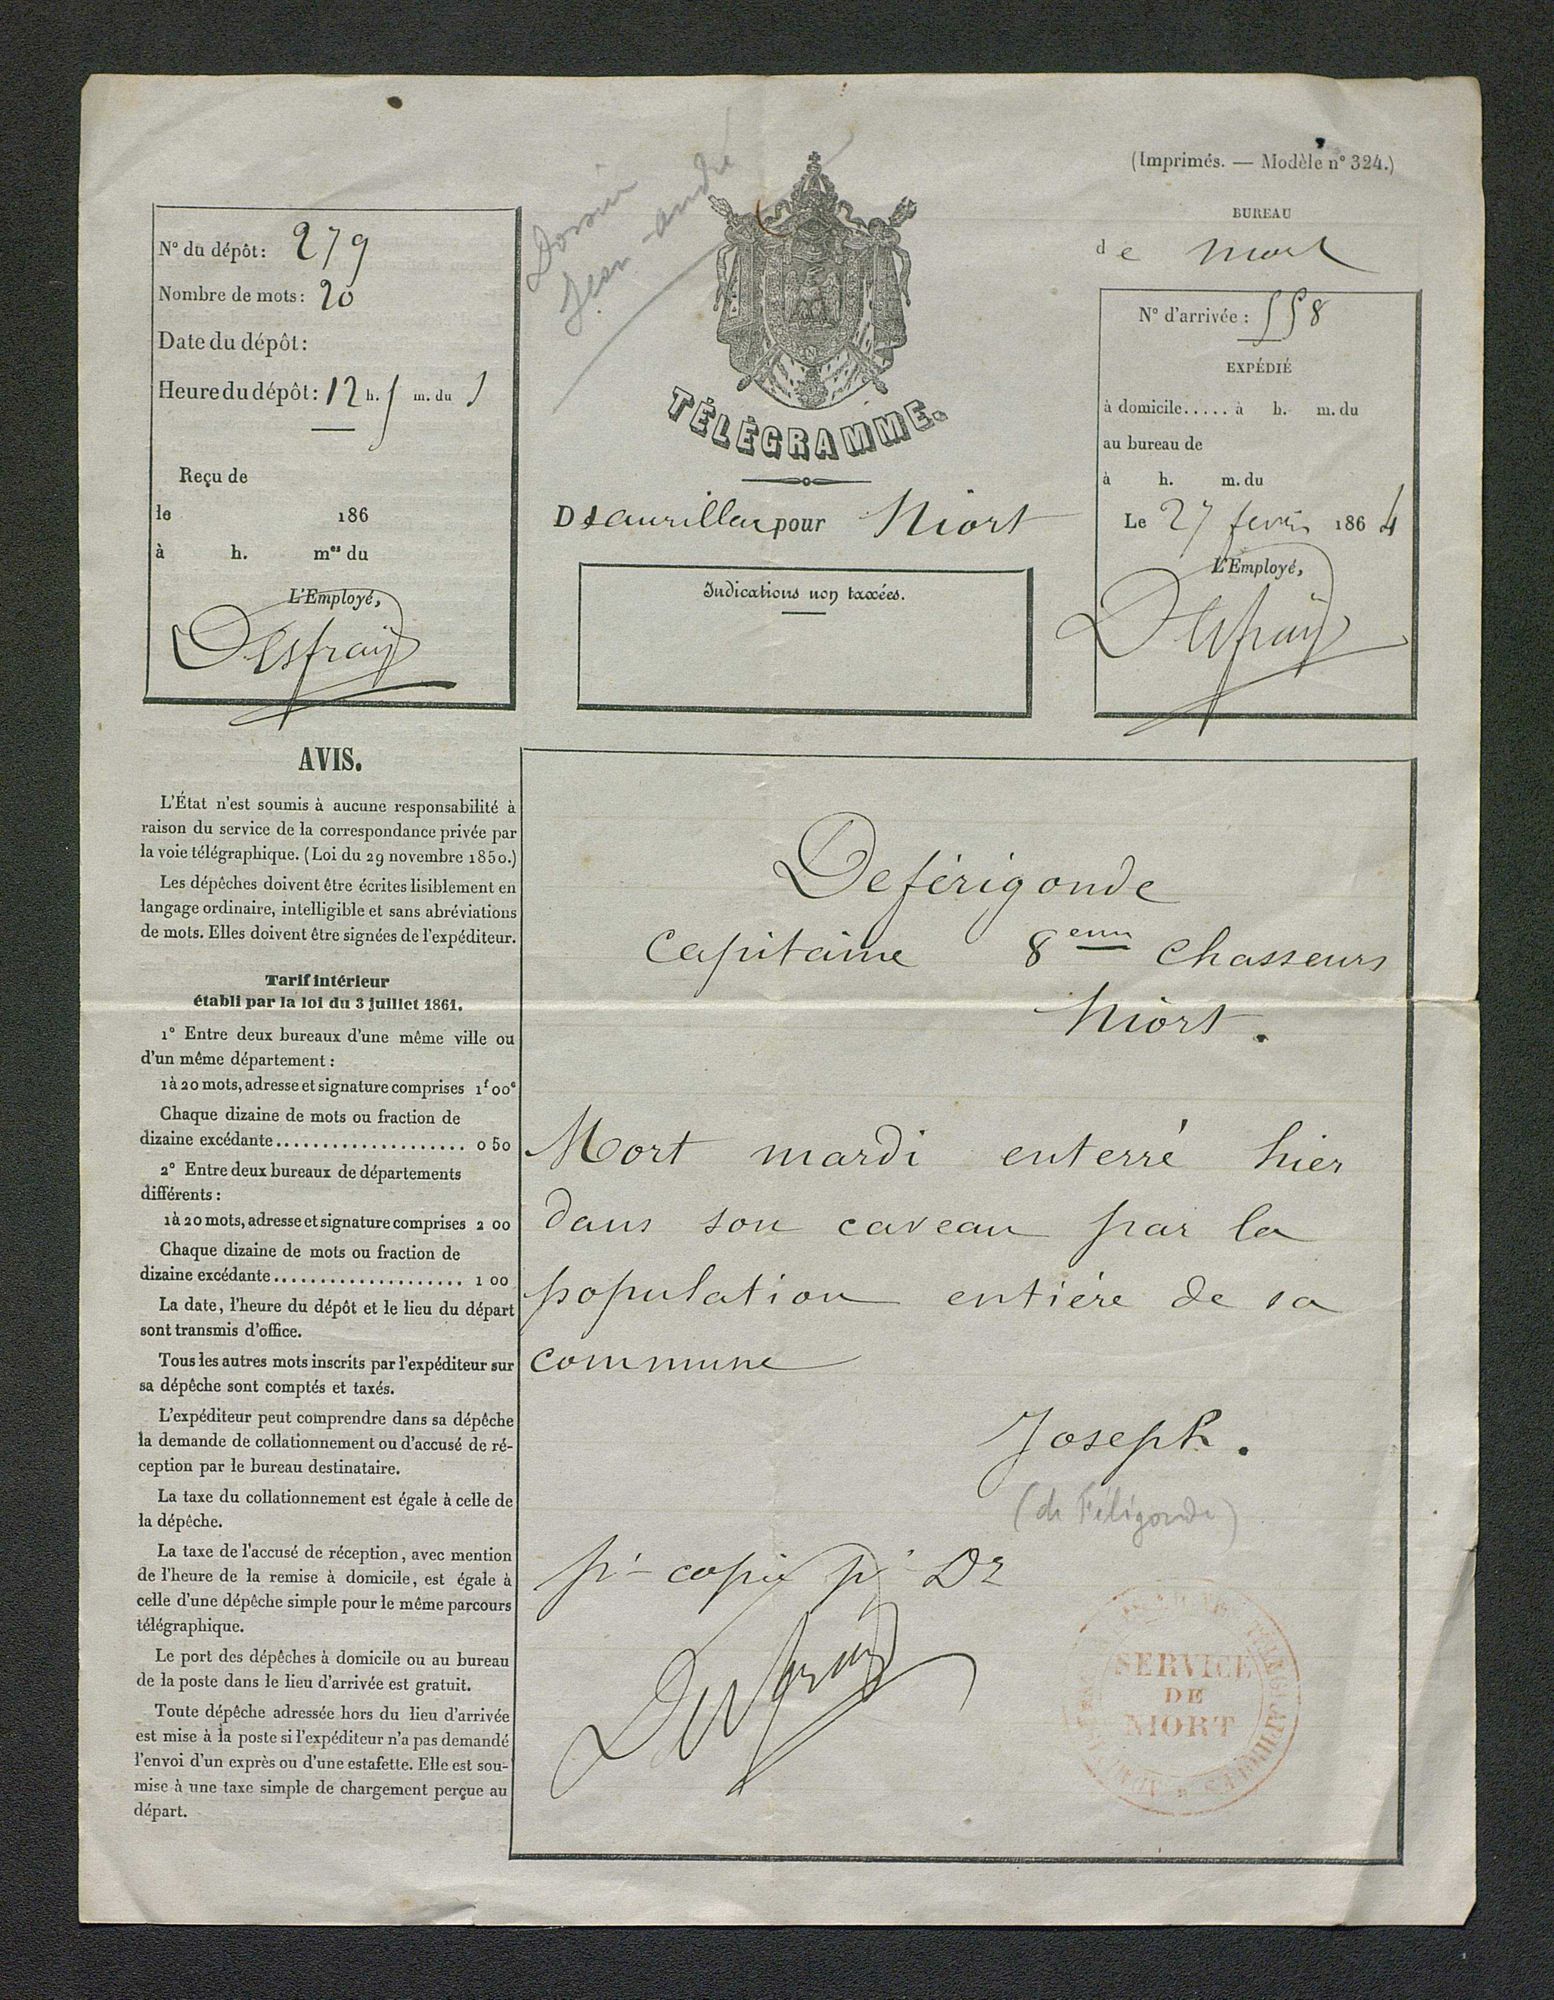 Dossier
Jean-andré
(Imprimés. — Modèle n° 324.)
N° du dépôt: 279
Nombre de mots: 20
Date du dépôt:
Heure du dépôt: 12 h. m. du
Reçu de
le 186
à h. mes du
L'Employé,
TÉLÉGRAMME.
De aurillac pour Niort
Indications non taxées.
BUREAU
de Niort
N° d'arrivée: 558
EXPÉDIÉ
à domicile..... à h. m. du
au bureau de
à h. m. du
Le 27 fevrier 1864
L'Employé,
AVIS.
L'État n'est soumis à aucune responsabilité à
raison du service de la correspondance privée par
la voie télégraphique. (Loi du 29 novembre 1850.)
Les dépêches doivent être écrites lisiblement en
langage ordinaire, intelligible et sans abréviations
de mots. Elles doivent être signées de l'expéditeur.
Tarif intérieur
établi par la loi du 3 juillet 1861.
1° Entre deux bureaux d'une même ville ou
d'un même département :
1 à 20 mots, adresse et signature comprises 1f 00c
Chaque dizaine de mots ou fraction de
dizaine excédante.................... 0 50
2° Entre deux bureaux de départements
différents :
1 à 20 mots, adresse et signature comprises 2 00
Chaque dizaine de mots ou fraction de
dizaine excédante.................... 1 00
La date, l'heure du dépôt et le lieu du départ
sont transmis d'office.
Tous les autres mots inscrits par l'expéditeur sur
sa dépêche sont comptés et taxés.
L'expéditeur peut comprendre dans sa dépêche
la demande de collationnement ou d'accusé de ré-
ception par le bureau destinataire.
La taxe du collationnement est égale à celle de
la dépêche.
La taxe de l'accusé de réception, avec mention
de l'heure de la remise à domicile, est égale à
celle d'une dépêche simple pour le même parcours
télégraphique.
Le port des dépêches à domicile ou au bureau
de la poste dans le lieu d'arrivée est gratuit.
Toute dépêche adressée hors du lieu d'arrivée
est mise à la poste si l'expéditeur n'a pas demandé
l'envoi d'un exprès ou d'une estafette. Elle est sou-
mise à une taxe simple de chargement perçue au
départ.
Deférigonde
Capitaine 8eme Chasseurs
Niort.
Mort mardi enterré hier
dans son caveau par la
population entière de sa
commune
Joseph.
(de Féligonde)
pr copie pr Dr
SERVICE
DE
NIORT